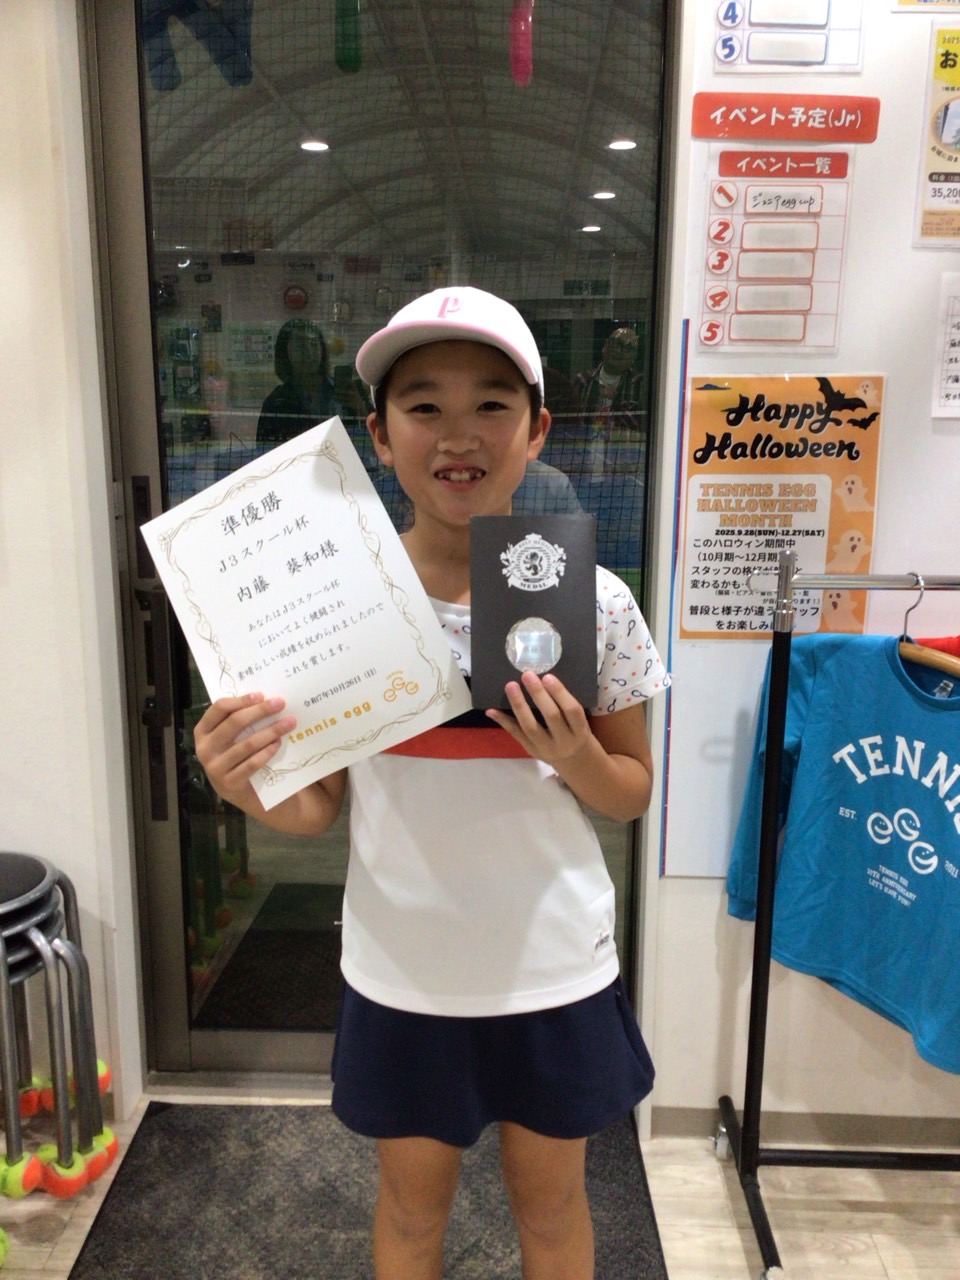 4
5
イベント予定(Jr)
イベント一覧
1 ジュニアegg cup
2
3
4
5
お
35,200
Happy
Halloween
TENNIS EGG
HALLOWEEN
MONTH
2025.9.28(SUN)-12.27(SAT)
このハロウィン期間中
(10月期〜12月期
スタッフの格好が
変わるかも
普段と様子が違う タッフ
をお楽しみ
準優勝
J3スクール杯
内藤 葵和様
あなたはJ3スクール杯
においてよく健闘され
素晴らしい成績を収められましたので
これを賞します。
令和7年10月26日(日)
tennis egg
egg
MEDAL
P
TENNIS
EST.
egg
2011
TENNIS EGG
10TH ANNIVERSARY
LET'S HAVE FUN!!